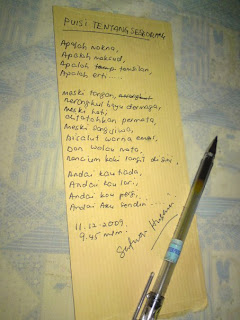 PUISI TENTANG SESEORANG
Apalah makna,
Apalah maksud,
Apalah tampilan,
Apalah erti....
Meski tangan,
merangkul bayu dermaga,
Meski hati,
ditatahkan permata,
Meski jiwa,
dicalit warna
Dan walau mata,
mencium kaki langit di sini,
Andai kau tiada,
Andai kau lari,
Andai kau pergi,
Andai Aku sendiri.....
11.12.2009
9.45 mlm.